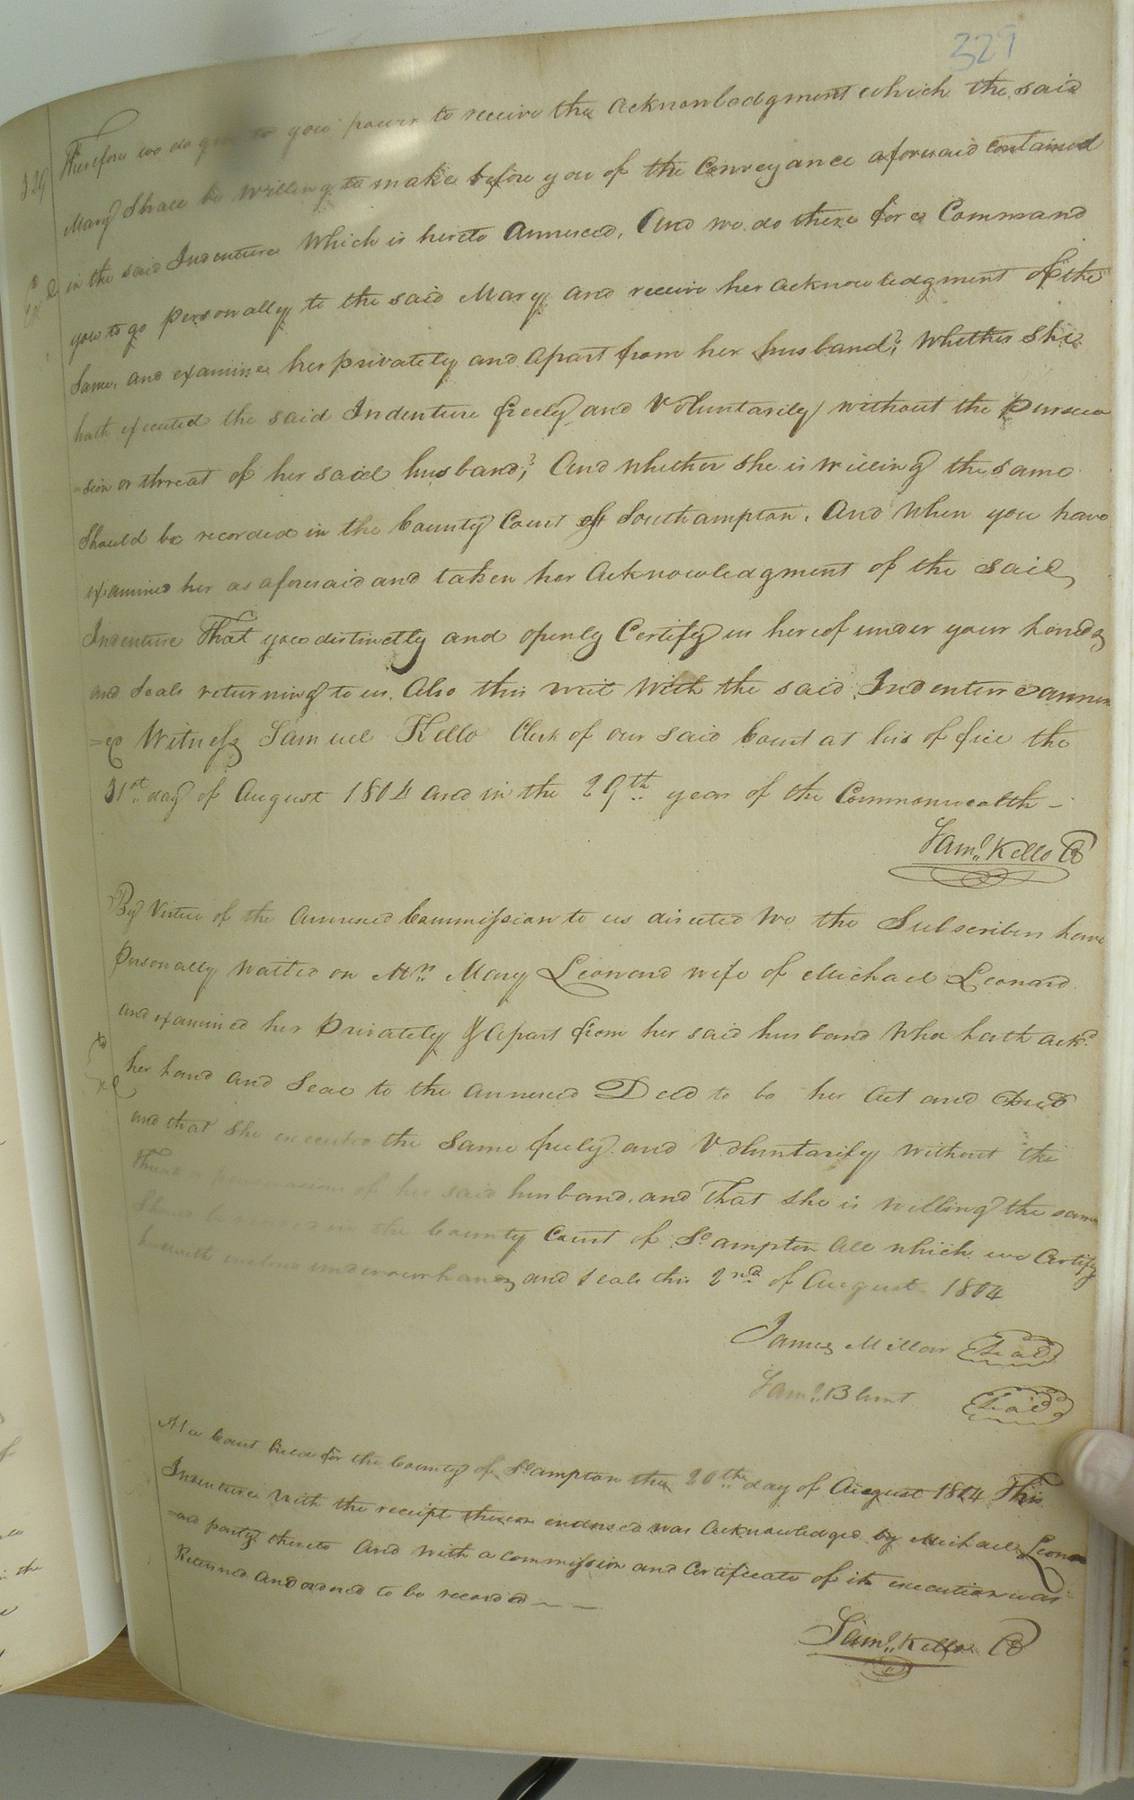 329
329
Therefore we do give to you power to receive the acknowledgment which the said
Mary Shall be willing to make before you of the Conveyance aforesaid contained
in the said Indenture Which is hereto Annexed, And we do therefore Command
you to go personally to the said Mary and receive her acknowledgment of the
Same, and examine her privately and apart from her husband, Whether She
hath executed the said Indenture freely and Voluntarily without the Persua
=sion or threat of her said husband, And whether she is willing the same
Should be recorded in the County Court of Southampton. And when you have
examined her as aforesaid and taken her Acknowledgment of the said
Indenture That you distinctly and openly Certify us hereof under your hands
and Seals returning to us Also this writ With the said Indenture annex
=ed Witness Samuel Kello Clerk of our said Court at his office the
31st day of August 1804 and in the 29th year of the Commonwealth —
Saml. Kello C
By Virtue of the annexed Commission to us directed We the Subscribers have
Personally waited on Mrs. Mary Leonard wife of Michael Leonard
and examined her Privately & apart from her said husband Who hath ackd.
her hand and Seal to the annexed Deed to be her Act and Deed
and that She executed the Same freely and Voluntarily without the
threat or persuasion of her said husband, and That she is willing the same
Should be recorded in the County Court of So. ampton All which we Certify
under our hands and seals this 2nd of August 1804
James Millar Seal
Saml. Blunt Seal
At a Court held for the County of So. ampton the 20th day of August 1804 This
Indenture With the receipt thereon endorsed was Acknowledged by Michael Leonar
=d party thereto And with a commission and Certificate of its execution was
Returned And ordered to be recorded — —
Saml. Kello C